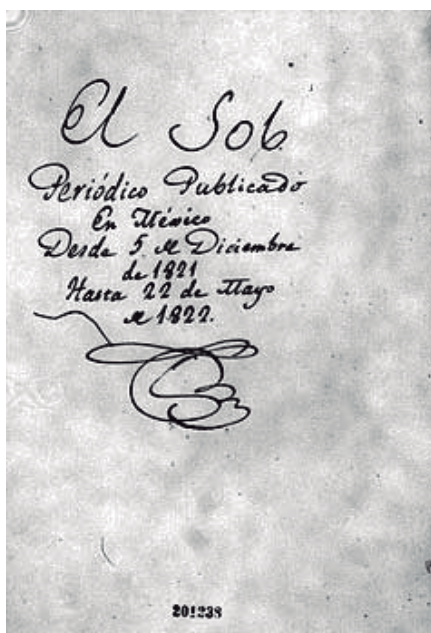 El Sol.
Periódico Publicado
En México
Desde 5 de Diciembre
de 1821
Hasta 22 de Mayo
de 1822.
201238